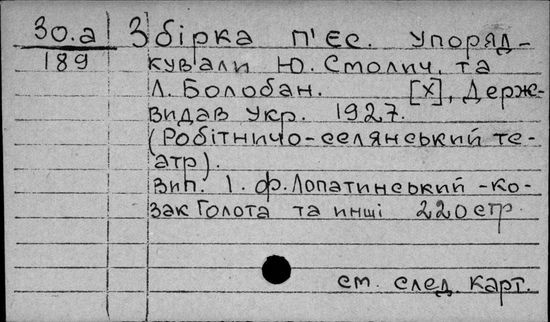 Зо.а
189
Збірка п'єс. Упоряд-
кували Ю. Столич, та
Л. Болобан. [х], Держ-
видав Укр. 1927.
(Робітничо-селянський те-
атр).
Вип. 1. ф. Лопатинський - ко-
зак Голота та инші 220 стр.
см. след. карт.